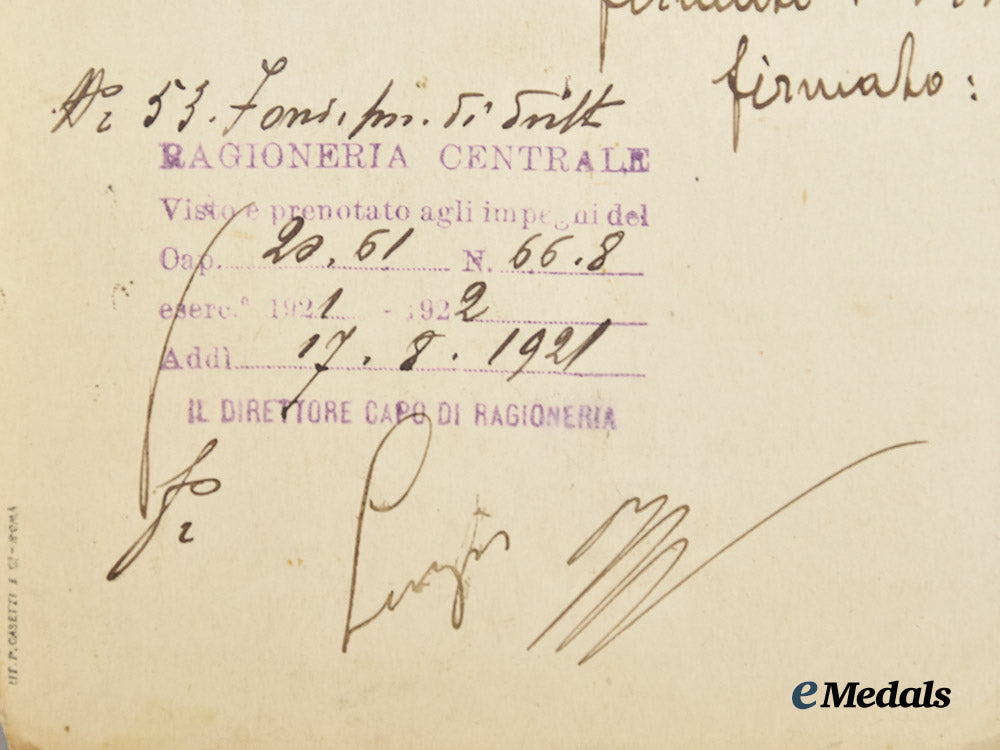 firmato:
53.
RAGIONERIA CENTRALE
Visto e prenotato agli impegni del
Cap. 20.61 N. 66.8
eserc.° 1921 - 1922
Addì 17.8.1921
IL DIRETTORE CAPO DI RAGIONERIA
LIT. P. CASETTI & CI - ROMA
eMedals